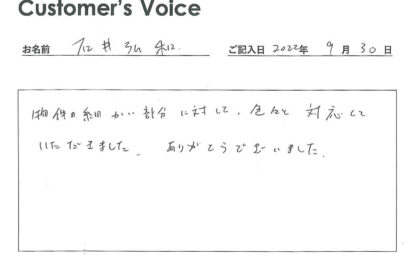 Customer's Voice
お名前 石井 弘和 ご記入日 2022年 9月30日
物件の細かい部分に対して、色々と対応して
いただきました。ありがとうございました。